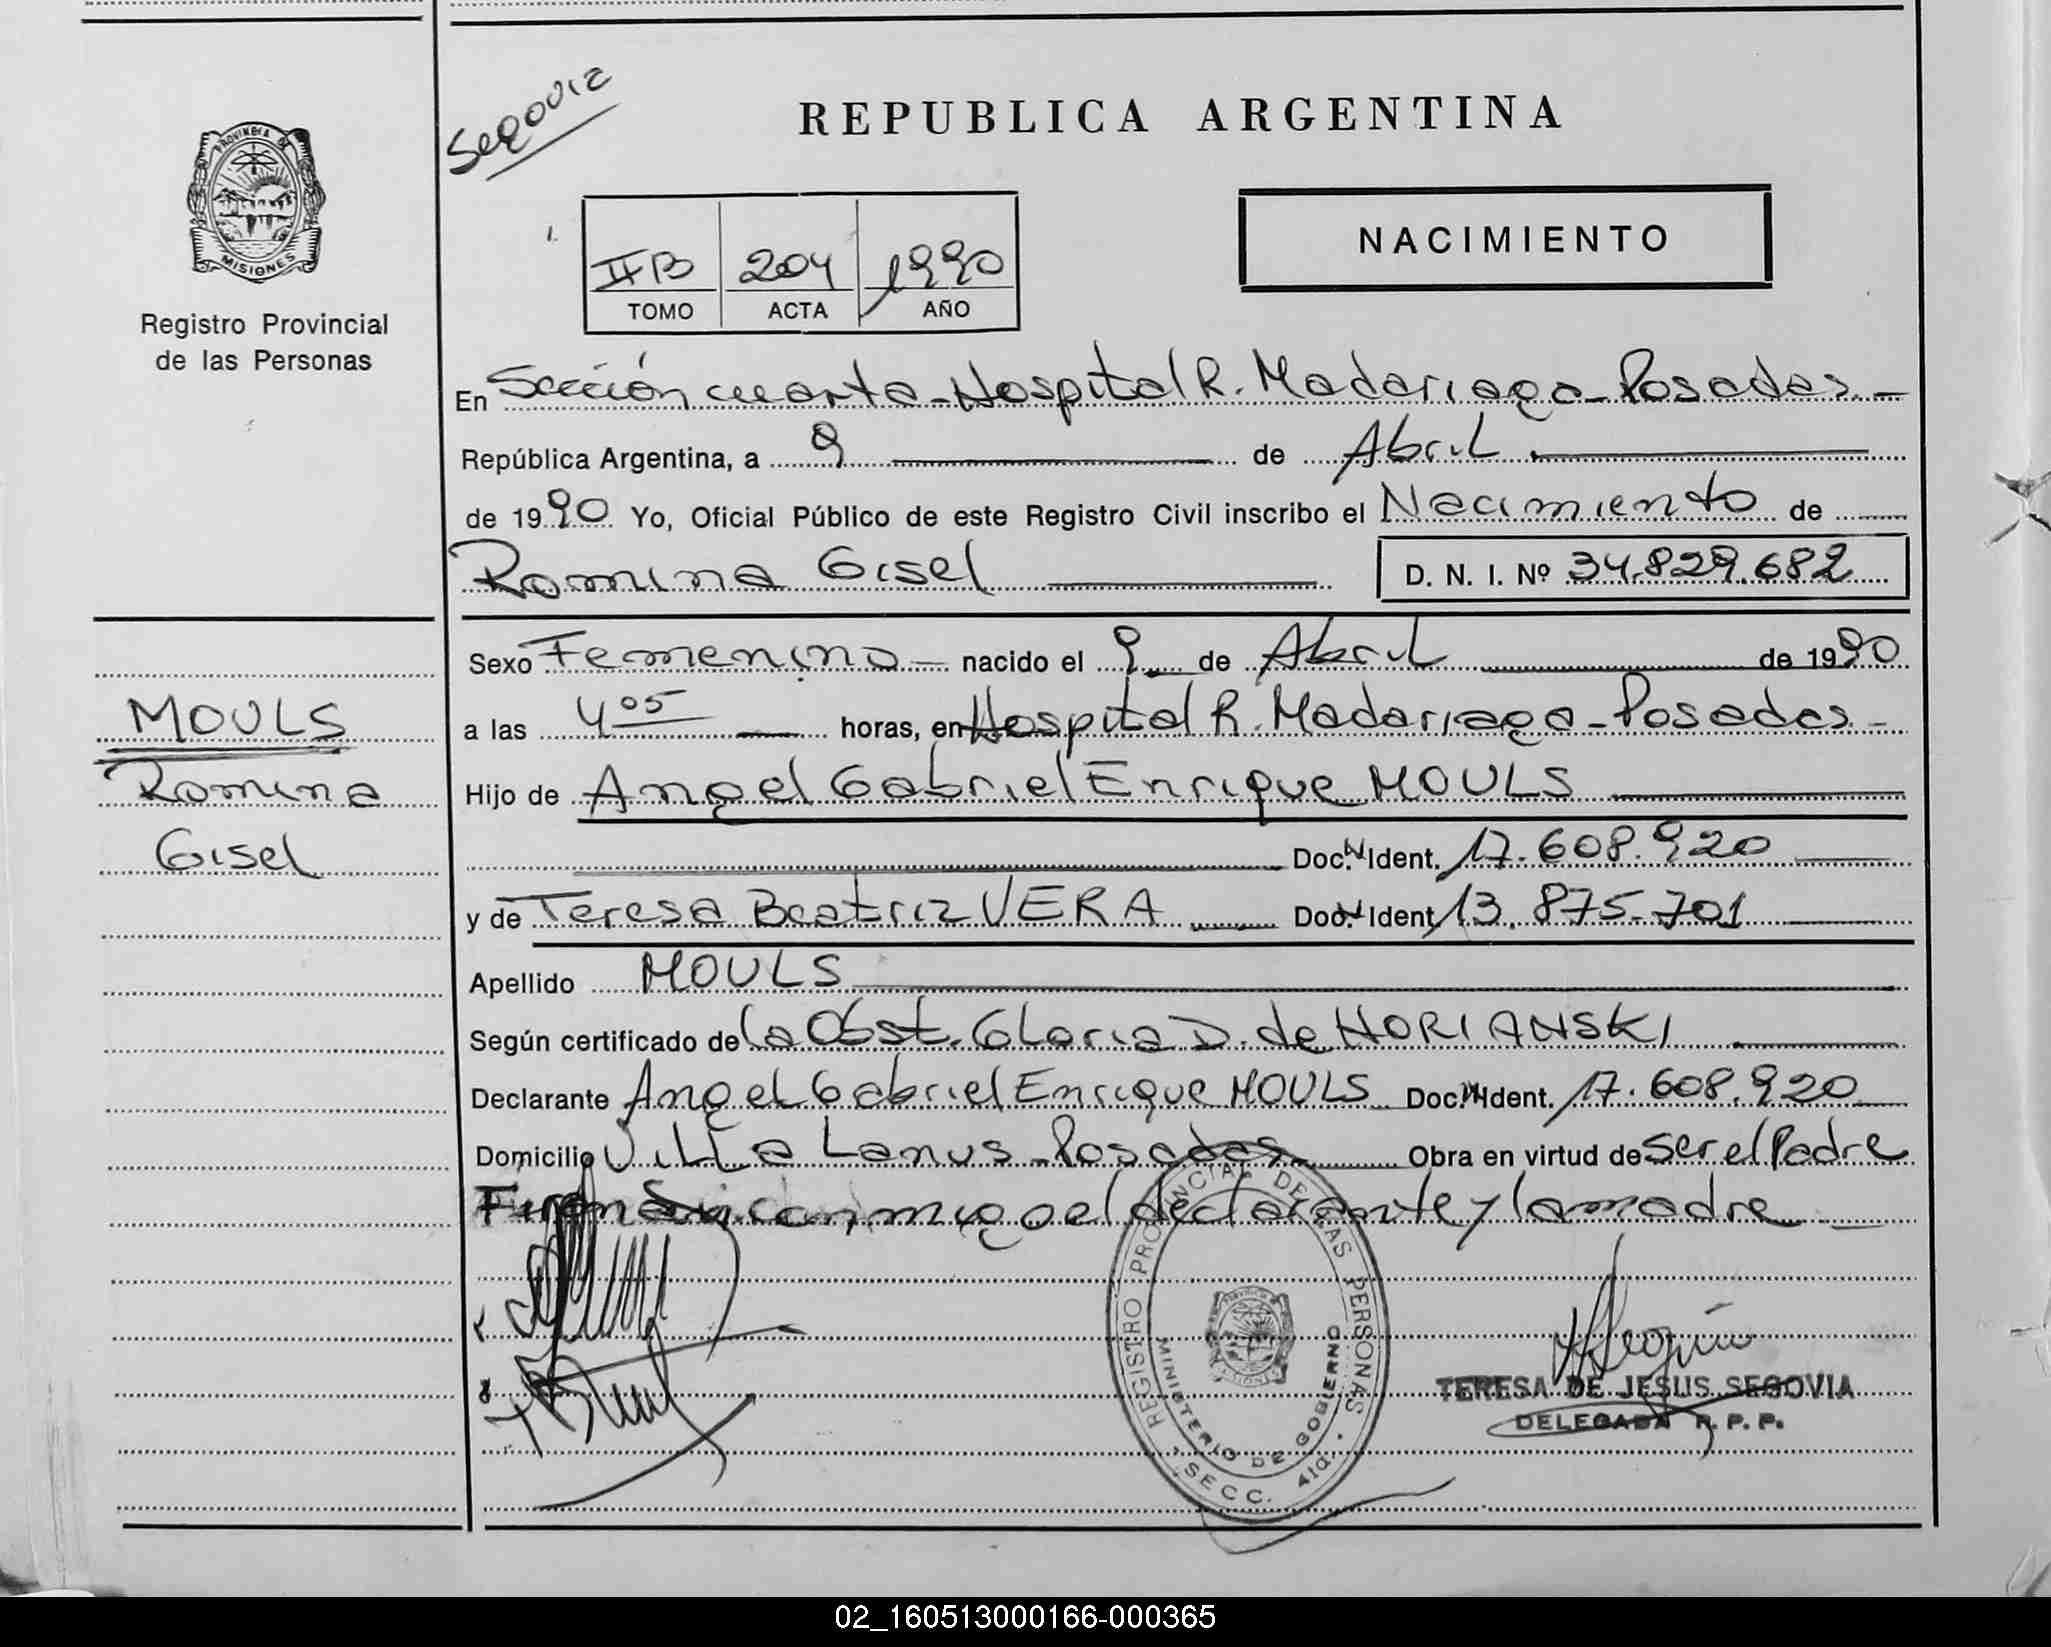 Segovia
REPUBLICA ARGENTINA
PROVINCIA DE
MISIONES
Registro Provincial
de las Personas
IIB 204 1990
TOMO ACTA AÑO
NACIMIENTO
En Sección cuarta - Hospital R. Madariaga - Posadas -
República Argentina, a 9 de Abril
de 1990 Yo, Oficial Público de este Registro Civil inscribo el Nacimiento de
Romina Gisel D. N. I. Nº 34.829.682
Sexo Femenino - nacido el 9 de Abril de 1990
a las 4 05 horas, en Hospital R. Madariaga - Posadas -
Hijo de Angel Gabriel Enrique MOULS
Doc. Ident. 17.608.920
y de Teresa Beatriz VERA Doc. Ident. 13.875.701
Apellido MOULS
Según certificado de la Obst. Gloria D. de HORIANSKI
Declarante Angel Gabriel Enrique MOULS Doc. Ident. 17.608.920
Domicilio Villa Lanus - Posadas Obra en virtud de ser el Padre
Firman conmigo el declarante y la madre
MOULS
Romina
Gisel
REGISTRO PROVINCIAL DE LAS PERSONAS
MINISTERIO DE GOBIERNO
SECC. 4ta.
TERESA DE JESUS SEGOVIA
DELEGADA R. P. P.
02_160513000166-000365